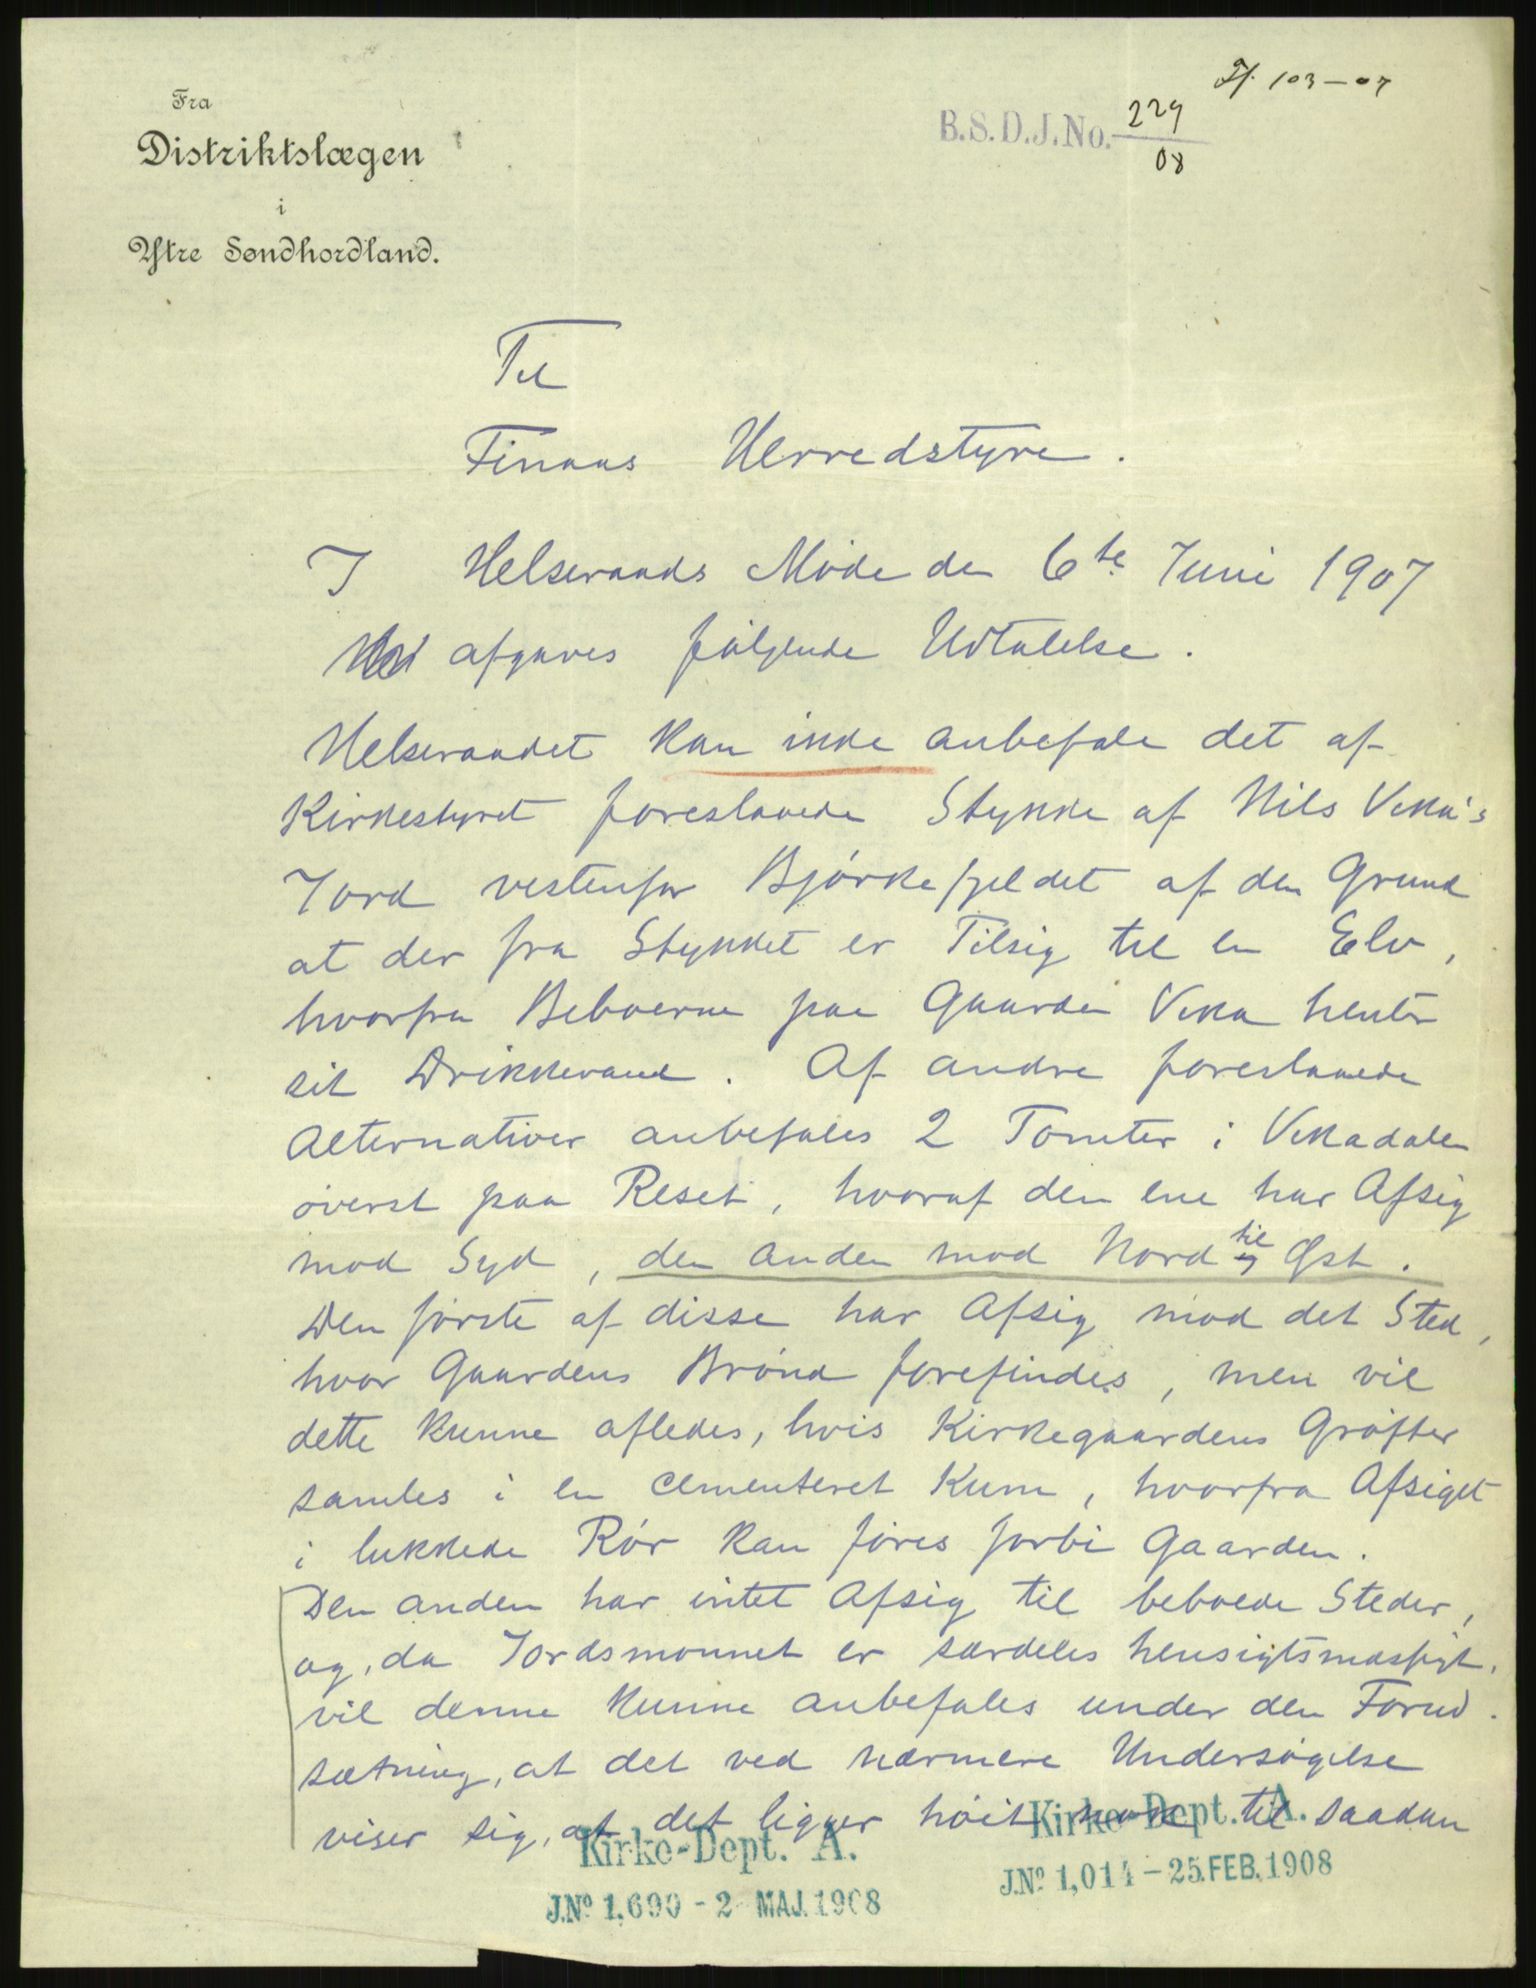 Fra
Distriktslægen
i
Ytre Søndhordland.
103-07
B.S.D.J.No. 229
08
Til
Finaas Herredstyre.
I Helseraads Møde den 6te Juni 1907
afgaves følgende Udtalelse.
Helseraadet kan ikke anbefale det af
Kirkestyret foreslaaede Stykke af Nils Vika's
Jord vestenfor Bjørkefjeldet af den Grund
at der fra Stykket er Tilsig til en Elv,
hvorfra Beboerne paa Gaarden Vika henter
sit Drikkevand. Af andre foreslaaede
Alternativer anbefales 2 Tomter i Vikadalen
øverst paa Reset, hvoraf den ene har Afsig
mod Syd, den anden mod Nord til Øst.
Den første af disse har Afsig mod det Sted,
hvor Gaardens Brønd forefindes, men vil
dette kunne afledes, hvis Kirkegaardens Grøfter
samles i en cementeret Kum, hvorfra Afsiget
i lukkede Rør kan føres forbi Gaarden.
Den anden har intet Afsig til beboede Steder,
og, da Jordsmonnet er særdeles hensigtsmæssigt,
vil denne kunne anbefales under den Forud-
sætning, at det ved nærmere Undersøgelse
viser sig, at det ligger høit nok til saadan
Kirke-Dept. A.
J.No 1,014 - 25.FEB.1908
Kirke-Dept. A.
J.No 1,690 - 2 MAJ.1908